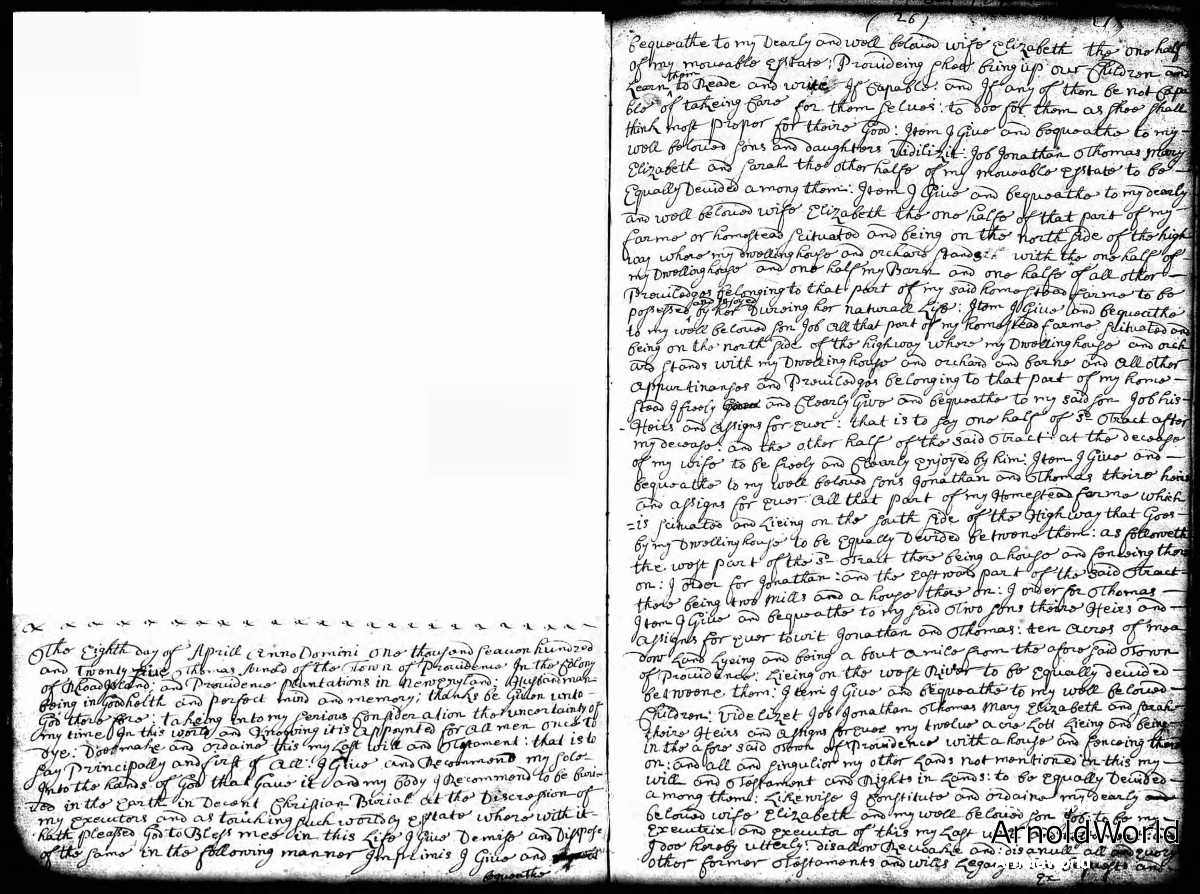 The Eighth day of Aprill Anno Domini one thousand seaven hundred
and Twenty five Thomas Arnold of the Town of Providence In the Colony
of Rhoad Island, and Providence plantations in New england; Husbandman
being in good health and perfect mind and memory; thanks be Given unto
God there fore; takeing into my serious Consideration the uncertainty of
my time In this world and Knowing it is appoynted for All men once to
Dye: Doe make and ordaine this my Last will and Testament: that is to
say Principally and first of All: I Give and Recommend my sole
Into the hands of God that Gave it and my body I Recommend to be buri=
=ed in the Earth in Decent Christian Burial at the Discression of
my executors and as touching such worldly estate where with it
hath pleased God to Bless mee in this Life I Give Demise and Dispose
of the same in the following manner Imprimis I Give and
bequeathe
(26)
bequeathe to my Dearly and well beloved wife Elizabeth the one half
of my moveable Estate; Provideing shee bring up our Children and
Learn them to Reade and write If Capable: and If any of them be not Capa
ble of takeing Care for them selves: to doe for them as shee shall
think most Proper for theire Good: Item I Give and bequeathe to my
well beloved sons and daughters Vidilizit: Job Jonathan Thomas Mary
Elizabeth and Sarah the other halfe of my moveable Estate to be
Equally Devided among them: Item I Give and bequeathe to my dearly
and well beloved wife Elizabeth the one halfe of that part of my
farme or homestead scituated and being on the north side of the high
way where my dwelling house and orchard stands with the one half of
my Dwelling house and one half my Barn and one halfe of all other
Previledges belonging to that part of my said homestead farme to be
possessed and Enjoyed by her Dureing her naturall Life: Item I Give and bequeathe
to my well beloved son Job All that part of my homestead farme scituated and
being on the north side of the highway where my Dwelling house and orch
ard stands with my Dwelling house and orchard and barne and All other
Appurtinanses and Previledges belonging to that part of my home
stead I freely and Clearly Give and bequeathe to my said son Job his
Heirs and Assigns for ever: that is to say one half of sd Tract after
my decease: and the other half of the said Tract at the decease
of my wife to be freely and Clearly enjoyed by him: Item I Give and
bequeathe to my well beloved sons Jonathan and Thomas theire heirs
and assigns for ever All that part of my Homestead farme which
=is scituated and Lieing on the south side of the High way that Goes
by my Dwelling house to be Equally Devided betwene them: as followeth
the west part of the sd Tract there being a house and fenceing there
on: I order for Jonathan: and the Eastward part of the said Tract
there being two Mills and a house there on: I order for Thomas
Item I Give and bequeathe to my said Two sons theire Heirs and
Assigns for ever towit Jonathan and Thomas: ten Acres of mea
dow Land Lyeing and being a bout a mile from the afore said Town
of Providence: Lieing on the west River to be Equally devided
betweene them: Item I Give and bequeathe to my well beloved
Children: Videlizet Job Jonathan Thomas Mary Elizabeth and Sarah
theire Heirs and Assigns for ever my twelve acre Lott Lieing and being
in the afore said Town of Providence with a house and fenceing there
on: and all and singulier my other Lands not mentioned in this my
will and Testament and Rights in Lands: to be Equally Devided
among them: Likewise I Constitute and ordaine my dearly
beloved wife Elizabeth and my well beloved son Job to be my
Executrix and executor of this my Last
I doe hereby utterly: disallow Revoake and disanull all and every
other former Testaments and wills
ArnoldWorld